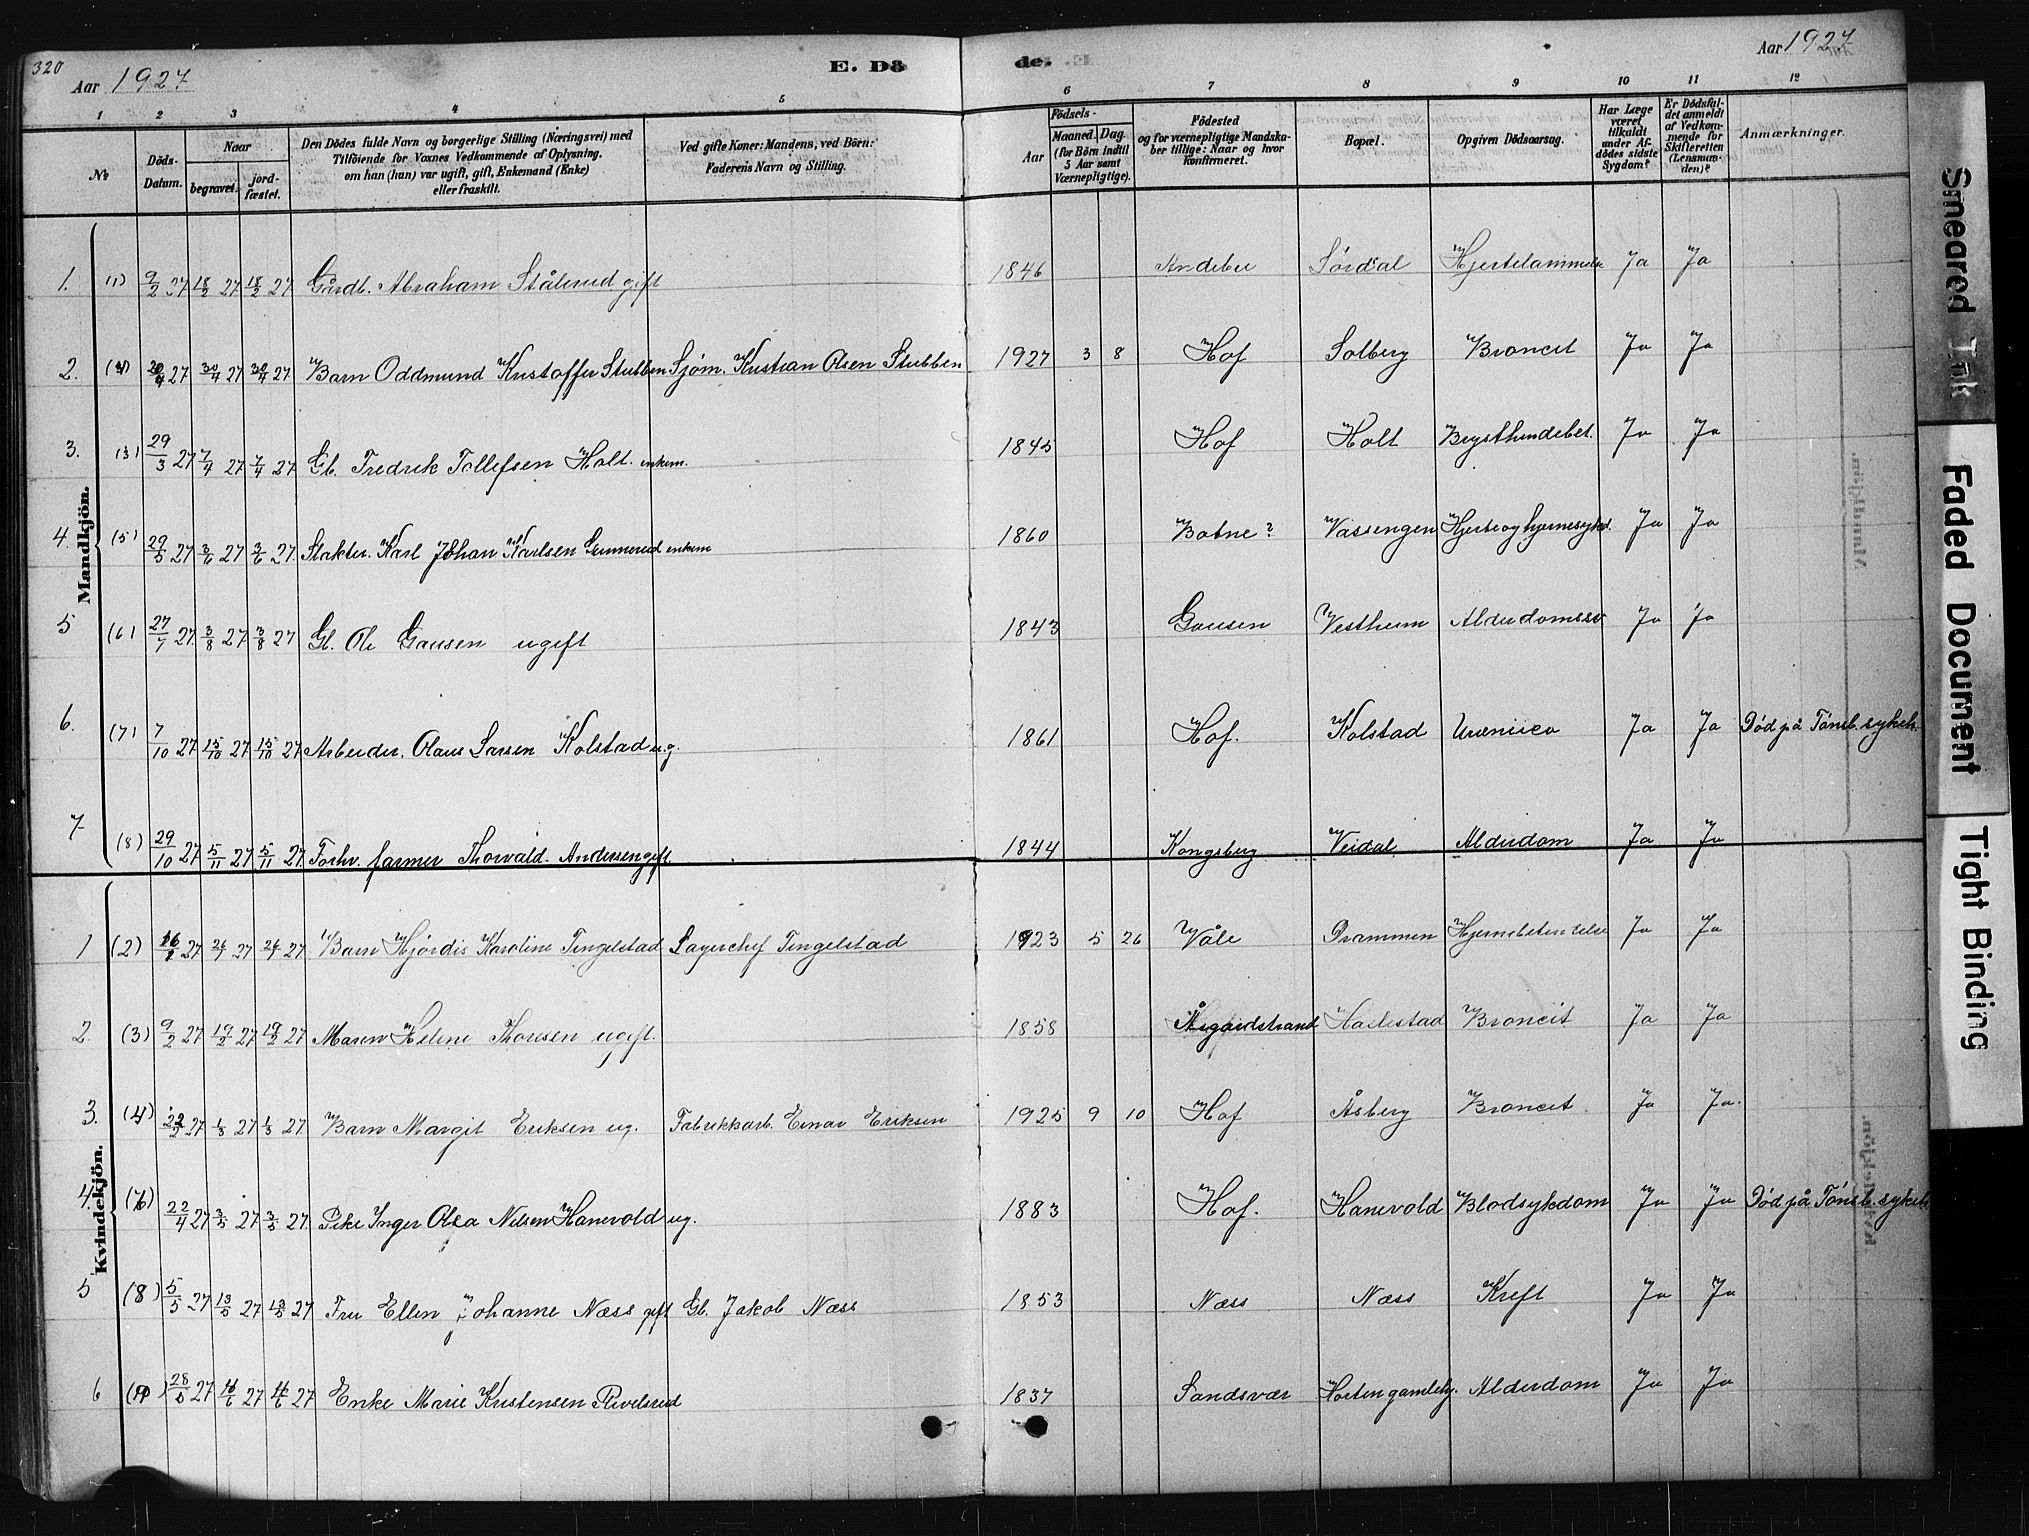 320
Aar 1927
E. Dö
de.
Aar 1927
1 2 3 4 5 6 7 8 9 10 11 12
№
Döds-Datum.
Naar
begravet.
jord-fæstet.
Den Dödes fulde Navn og borgerlige Stilling (Næringsvei) med Tilföiende for Voxnes Vedkommende af Oplysning. om han (hun) var ugift, gift, Enkemand (Enke) eller fraskilt.
Ved gifte Koner: Mandens, ved Börn: Faderens Navn og Stilling.
Födsels-
Aar
Maaned. Dag. (for Börn indtil 5 Aar samt Værnepligtige).
Födested og for værnepligtige Mandskaber tillige: Naar og hvor konfirmeret.
Bopæl.
Opgiven Dödsaarsag.
Har Læge været tilkaldt under Afdödes sidste Sygdom?
Er Dödsfaldet anmeldt af Vedkommende for Skifteretten (Lensmanden)?
Anmærkninger.
Mandkjön.
1. (1) 9/2 27 18/2 27 18/2 27 Gårdb. Abraham Stålerud gift 1846 Andebu Sørdal Hjertelammelse Ja Ja
2. 20/4 27 30/4 27 30/4 27 Barn Oddmund Kristoffer Stubben Sjøm. Kristian Olsen Stubben 1927 3 8 Hof Solberg Broncit Ja Ja
3. (3) 29/3 27 7/4 27 7/4 27 Gb. Fredrik Tollefsen Holt. enkem. 1845 Hof Holt Brysthindebet. Ja Ja
4. (5) 29/5 27 3/6 27 3/6 27. Karl Johan Karlsen Gunnerud enkem 1860 Botne? Vassengen Hjerte og hjernesykd. Ja Ja
5 (6) 27/7 27. 3/8 27 3/8 27 Gb. Ole Gausen ugift 1843 Gausen Vestheim Alderdomssv Ja Ja
6. (7) 7/10 27 15/10 27 15/10 27 Arbeider. Olaus Larsen Kolstad ug. 1861 Hof. Kolstad Uræmica Ja Ja Død på Tønsb. sykeh.
7 (8) 29/10 27 5/11 27 5/11 27 Forhv. farmer Thorvald Andersen gift. 1844 Kongsberg Veidal Alderdom Ja Ja
Kvindekjön.
1 (2) 16/1 27 24/1 27 24/1 27 Barn Hjørdis Karoline Tingelstad Lagerchef Tingelstad 1923 5 26 Våle Drammen Hjernebetendelse Ja Ja
2. (3) 9/2 27 19/2 27 19/2 27 Maren Helene Thoresen ugift. 1858 Åsgaardstrand Harlestad Broncit Ja Ja
3. (4) 22/2 27 1/3 27 1/3 27. Barn Margit Eriksen ug. Fabrikkarb. Einar Eriksen 1925 9 10 Hof Åsberg Broncit. Ja Ja.
4. 22/4 27 3/5 27 3/5 27. Pike Inger Olea Nilsen Hanevold ug. 1883 Hof. Hanevold Blodsykdom Ja Ja Død på Tønsb. sykeh.
5 (8) 5/5 27 13/5 27 13/5 27 Fru Ellen Johanne Næss gift Gb. Jakob Næss 1853 Næss Næss Kreft Ja Ja
6 (9) 28/5 27 4/6 27 4/6 27 Enke Marie Kristensen Rivelsrud 1837 Sandsvær Horten gamlehj. Alderdom Ja Ja
Smeared Ink
Faded Document
Tight Binding